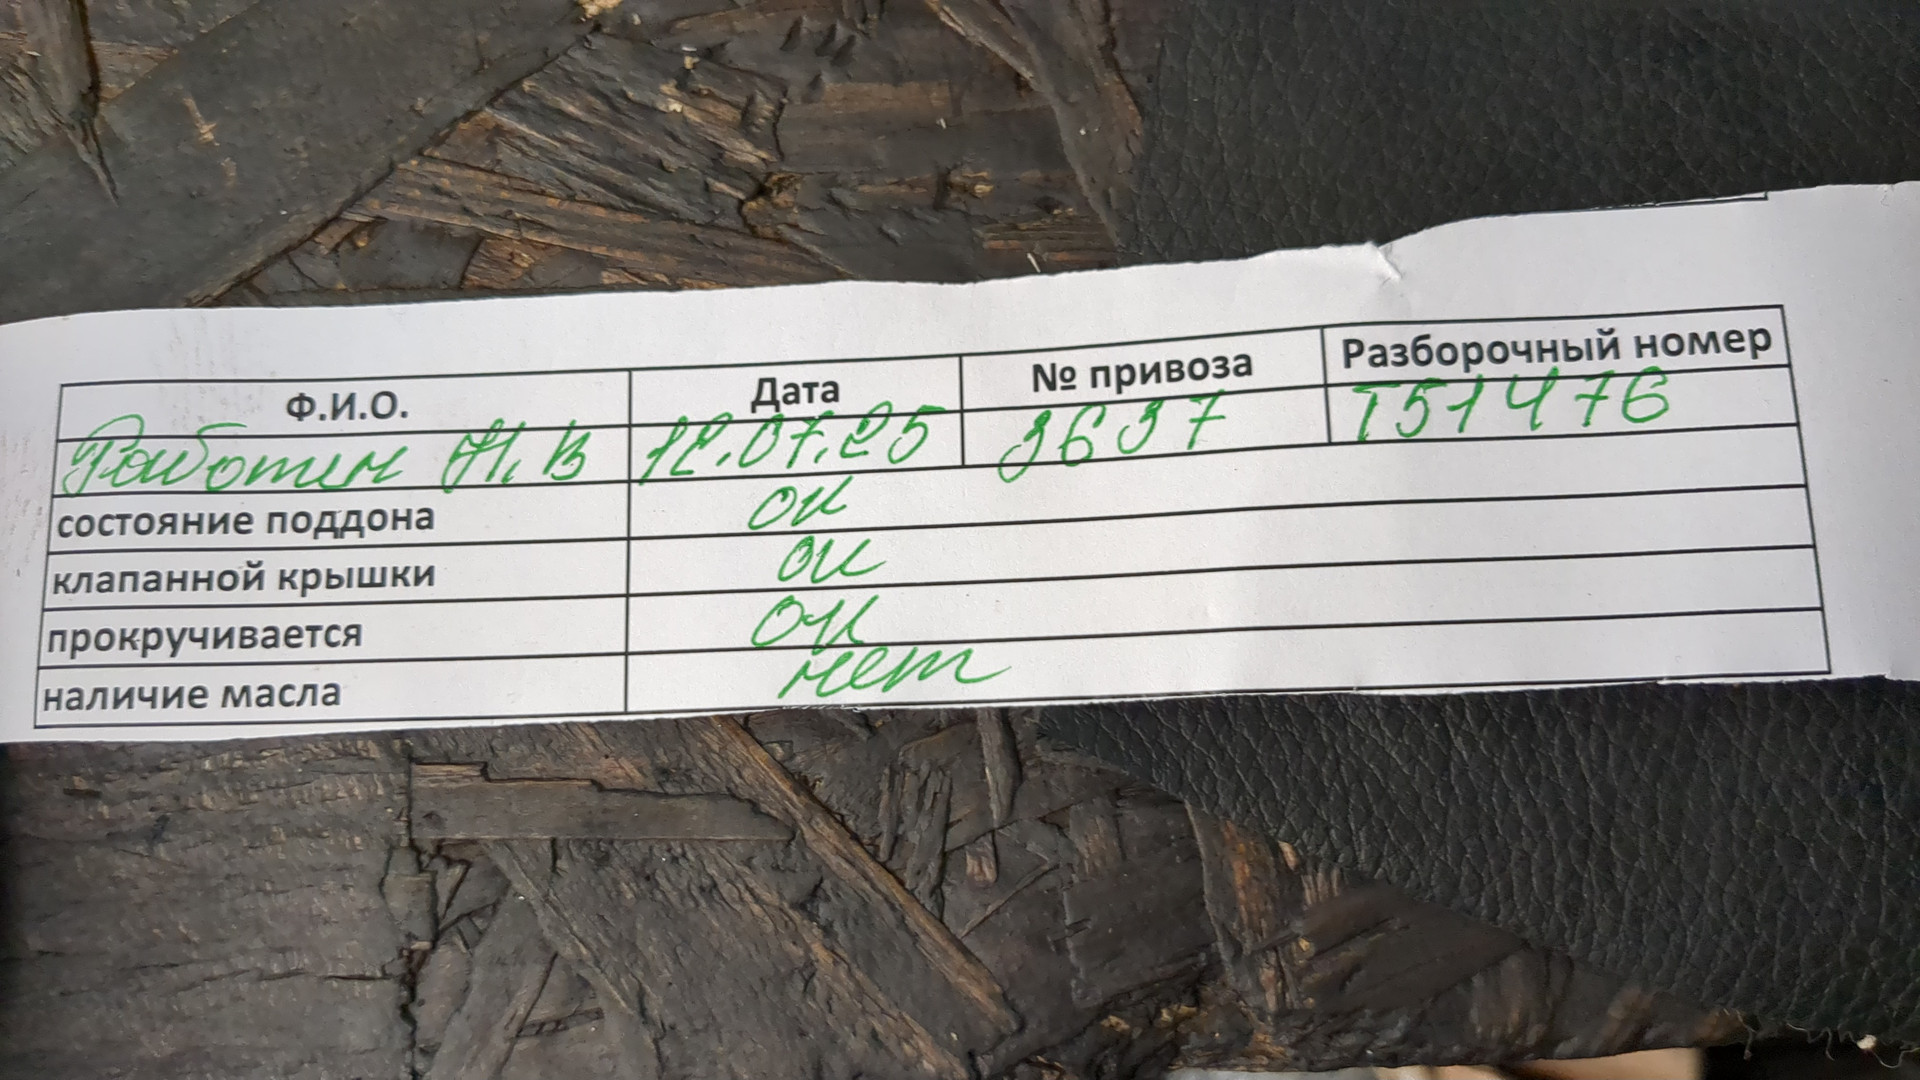 Ф.И.О. Дата № привоза Разборочный номер
Работин Н.В 12.07.25 3637 Т51476
состояние поддона ок
клапанной крышки ок
прокручивается ок
наличие масла нет